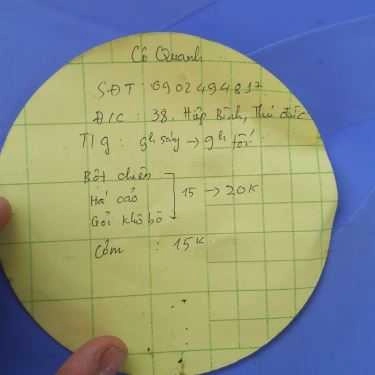 Cô Quanh
SĐT : 0902494817
Đ/C : 38. Hiệp Bình, Thủ Đức
T/g : 9h sáng → 9h tối
Bột chiên
Há cảo 15 → 20K
Gỏi khô bò
Cốm : 15K